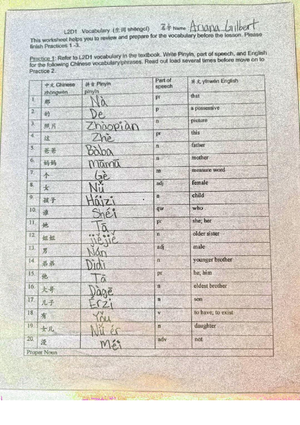 L2D1 Vocabulary (生词 shēngcí) 名字 Name: Ariana Gilbert
This worksheet helps you to review and prepare for the vocabulary before the lesson. Please
finish Practices 1 -3.
Practice 1: Refer to L2D1 vocabulary in the textbook. Write Pinyin, part of speech, and English
for the following Chinese vocabulary/phrases. Read out loud several times before move on to
Practice 2.
中文 Chinese 拼音 Pinyin Part of speech 英文 yīngwén English
1. 那 Nà pr that
2. 的 De p a possessive
3. 照片 Zhàopiàn n picture
4. 这 Zhè pr this
5. 爸爸 Bàba n father
6. 妈妈 Māmā n mother
7. 个 Gè m measure word
8. 女 Nǚ adj female
9. 孩子 Háizi n child
10. 谁 Shéi qw who
11. 她 Tā pr she; her
12. 姐姐 jiějiě n older sister
13. 男 Nán adj male
14. 弟弟 Dìdi n younger brother
15. 他 Tā pr he; him
16. 大哥 Dàgē n oldest brother
17. 儿子 Érzi n son
18. 有 Yǒu v to have; to exist
19. 女儿 Nǚ ér n daughter
20. 没 Méi adv not
Proper Noun